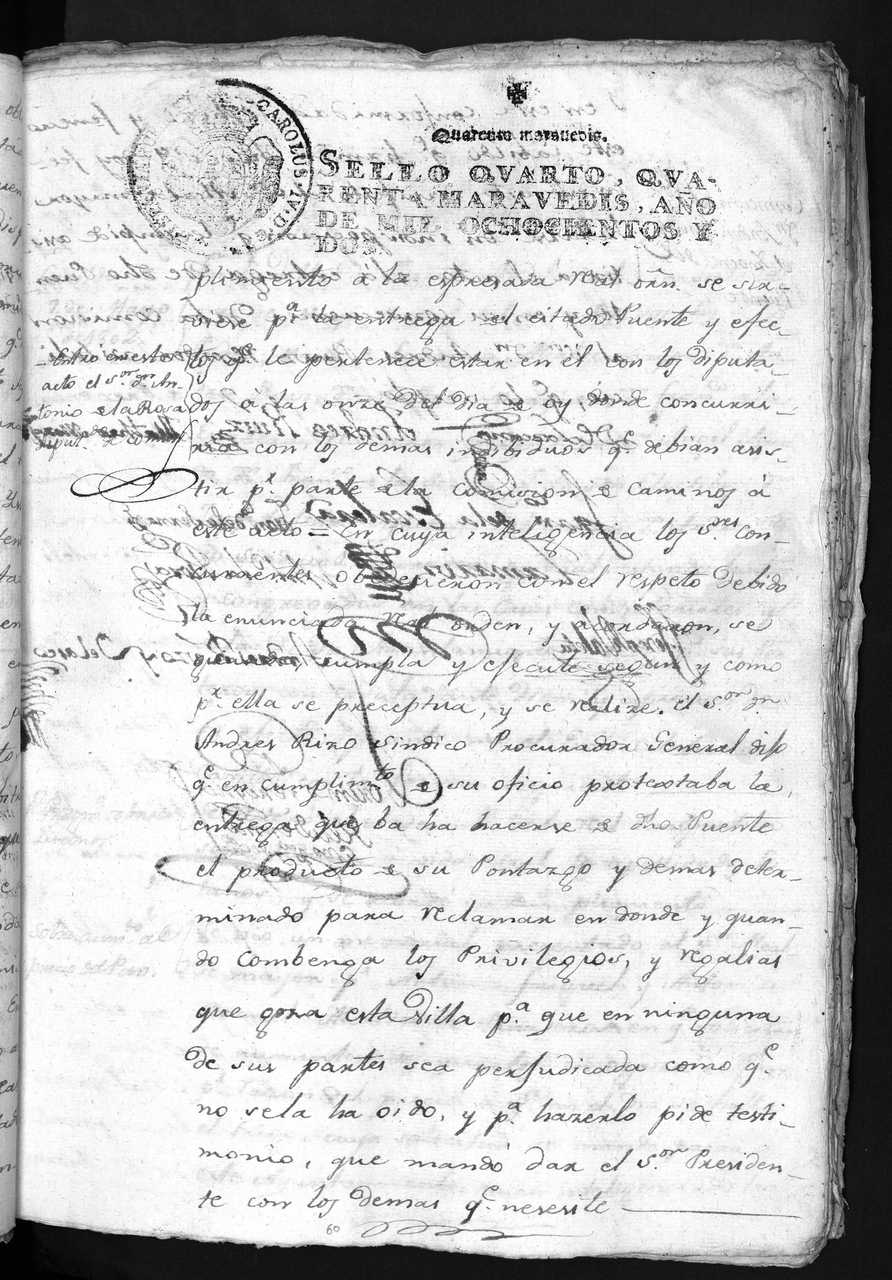 CAROLUS IV D
Quarenta maravedis.
SELLO QVARTO, QVA-
RENTA MARAVEDIS, AÑO
DE MIL OCHOCIENTOS Y
DOS.
plimiento á la espresada real orñ. se sir-
viese pª. la entrega el citado Puente y efec-
tos qᵉ. le pertenece estar en el con los Diputa-
dos á las onze del dia de oy, donde concurri-
con los demas individuos qᵉ. debian asis-
tir pʳ. parte de la comicion de caminos á
este acto = En cuya inteligencia los S.ʳᵉˢ con-
currentes obedecieron con el respeto debido
la enunciada real orden, y acordaron, se
cumpla y efecute segun y como
pʳ. ella se preceptua, y se realize. el S.ᵒʳ dⁿ.
Andres Rizo Sindico Procurador General dijo
qᵉ. en cumplimᵗᵒ de su oficio protextaba la
entrega que ba ha hacerse de dho Puente
el producto de su Pontazgo y demas deter-
minado para reclamar en donde y quan-
do combenga los Privilegios, y regalias
que goza esta Villa pª. que en ninguna
de sus partes sea perjudicada como qᵉ.
no sela ha oido, y pª. hazerlo pide testi-
monio, que mandó dar el S.ᵒʳ Presiden-
te con los demas qᵉ. nesesite
Entró en este
acto el S.ᵒʳ dⁿ. An-
tonio de la Rosa
Diput.
60